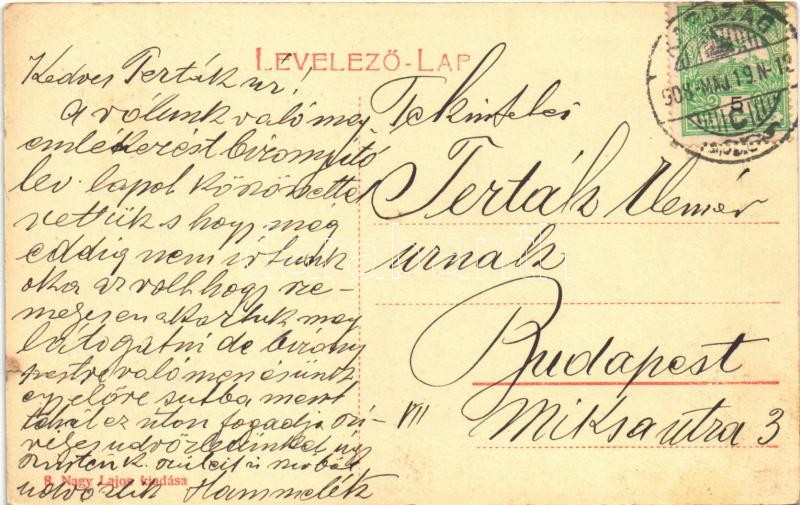 LEVELEZŐ-LAP
Kedves Terták úr!
A rólunk való meg
emlékezést bizonyító
lev. lapot köszönettel
vettük s hogy még
eddig nem írtunk
oka az volt hogy sze-
mélyesen akartuk meg
látogatni de bizony
pestre való menésünk
egyelőre sutba ment
tehát ez úton fogadja szí-
vélyes üdvözletünket úgy
szüleit is
üdvözlik Hammelék
Tekintetes
Terták Elemér
urnak
Budapest
VII Miksa utza 3
KARCZAG
909 MÁJ 19 N-12
C
5
8. Nagy Lajos kiadása